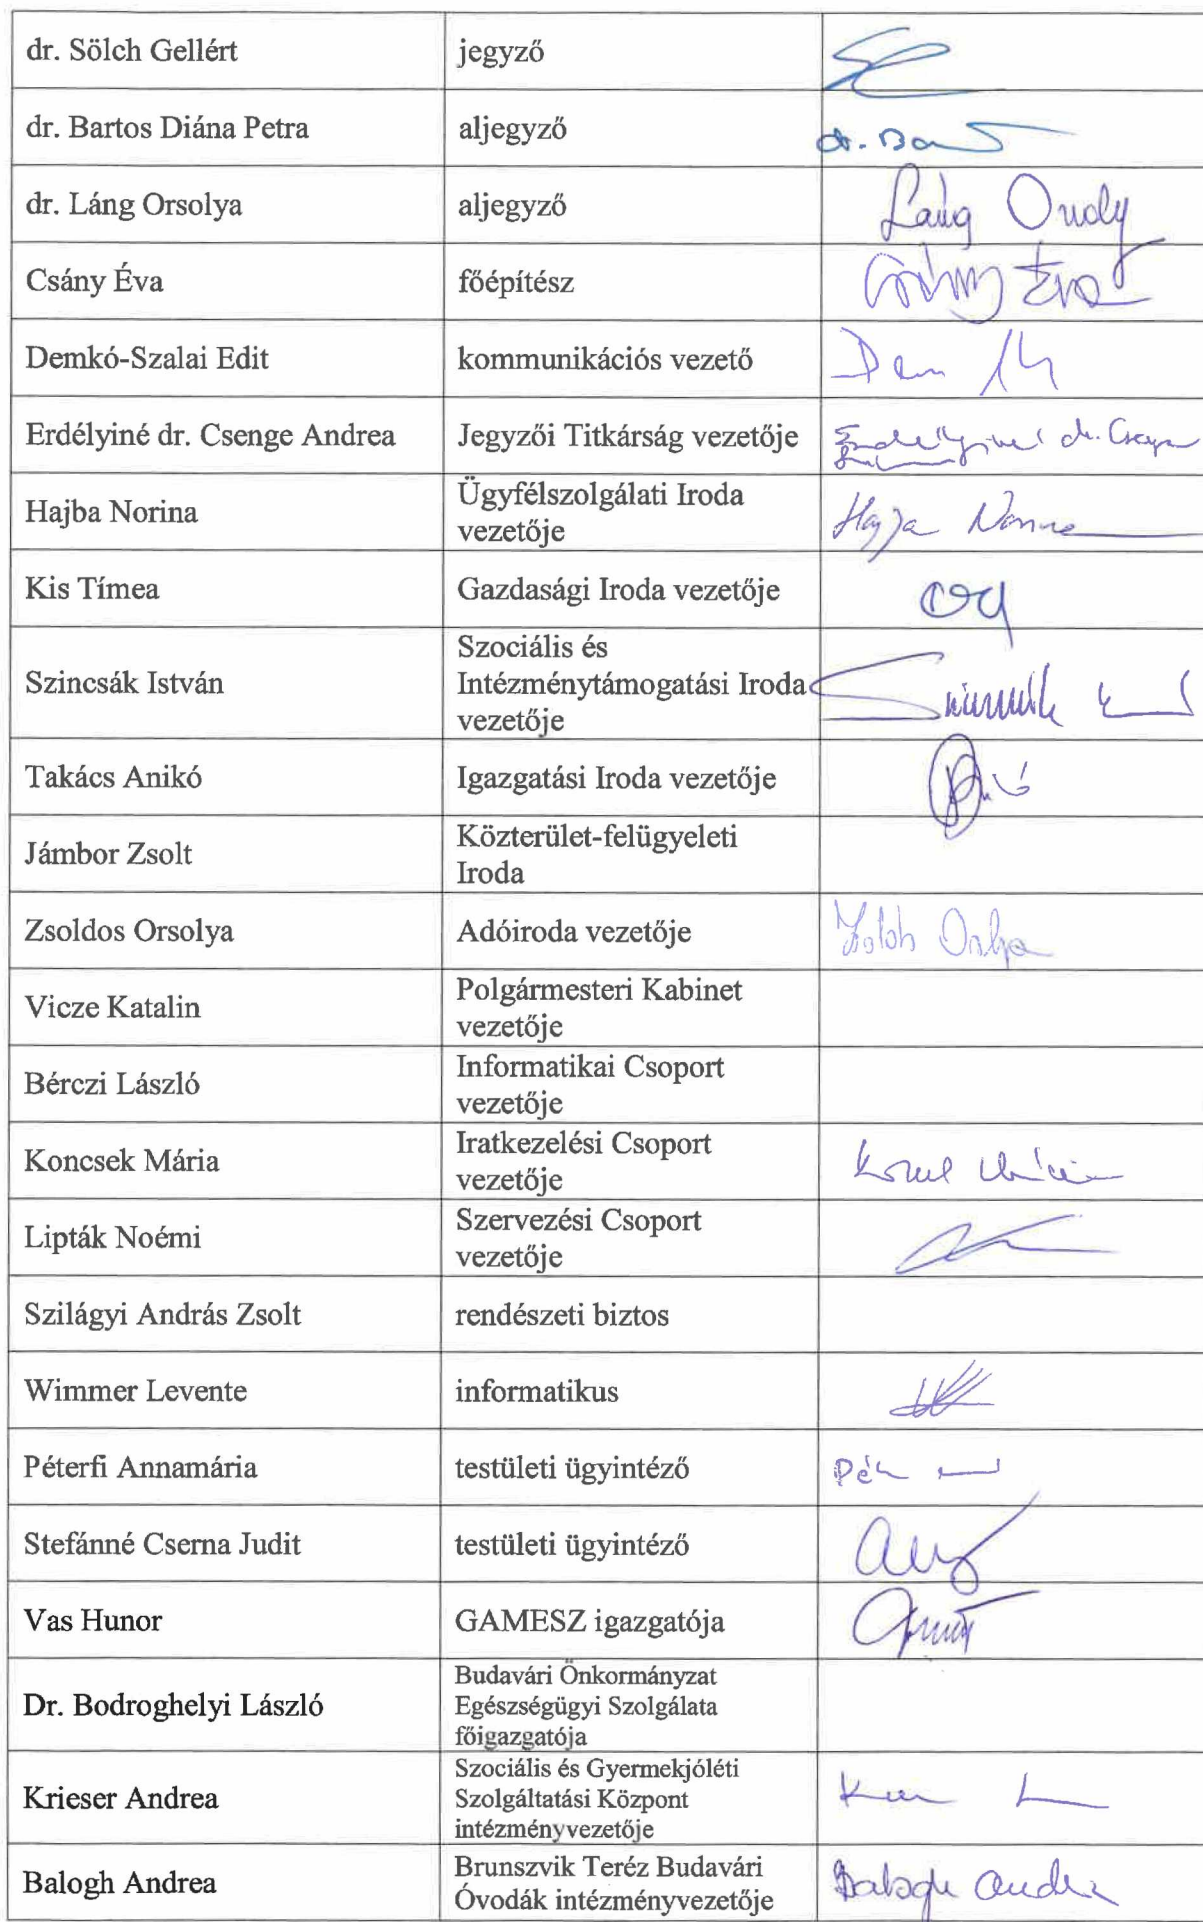 dr. Sölch Gellért
jegyző
dr. Bartos Diána Petra
aljegyző
dr. Láng Orsolya
aljegyző
Láng
Csány Éva
főépítész
Éva
Demkó-Szalai Edit
kommunikációs vezető
Erdélyiné dr. Csenge Andrea
Jegyzői Titkárság vezetője
Erdélyiné dr.
Hajba Norina
Ügyfélszolgálati Iroda
vezetője
Kis Tímea
Gazdasági Iroda vezetője
Szincsák István
Szociális és
Intézménytámogatási Iroda
vezetője
Takács Anikó
Igazgatási Iroda vezetője
Jámbor Zsolt
Közterület-felügyeleti
Iroda
Zsoldos Orsolya
Adóiroda vezetője
Vicze Katalin
Polgármesteri Kabinet
vezetője
Bérczi László
Informatikai Csoport
vezetője
Koncsek Mária
Iratkezelési Csoport
vezetője
Lipták Noémi
Szervezési Csoport
vezetője
Szilágyi András Zsolt
rendészeti biztos
Wimmer Levente
informatikus
Péterfi Annamária
testületi ügyintéző
Stefánné Cserna Judit
testületi ügyintéző
Vas Hunor
GAMESZ igazgatója
Dr. Bodroghelyi László
Budavári Önkormányzat
Egészségügyi Szolgálata
főigazgatója
Krieser Andrea
Szociális és Gyermekjóléti
Szolgáltatási Központ
intézményvezetője
Balogh Andrea
Brunszvik Teréz Budavári
Óvodák intézményvezetője
Balogh Andrea